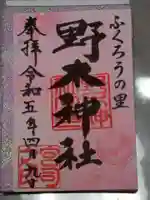 ふくろうの里
野木神社
奉拝 令和五年四月九日